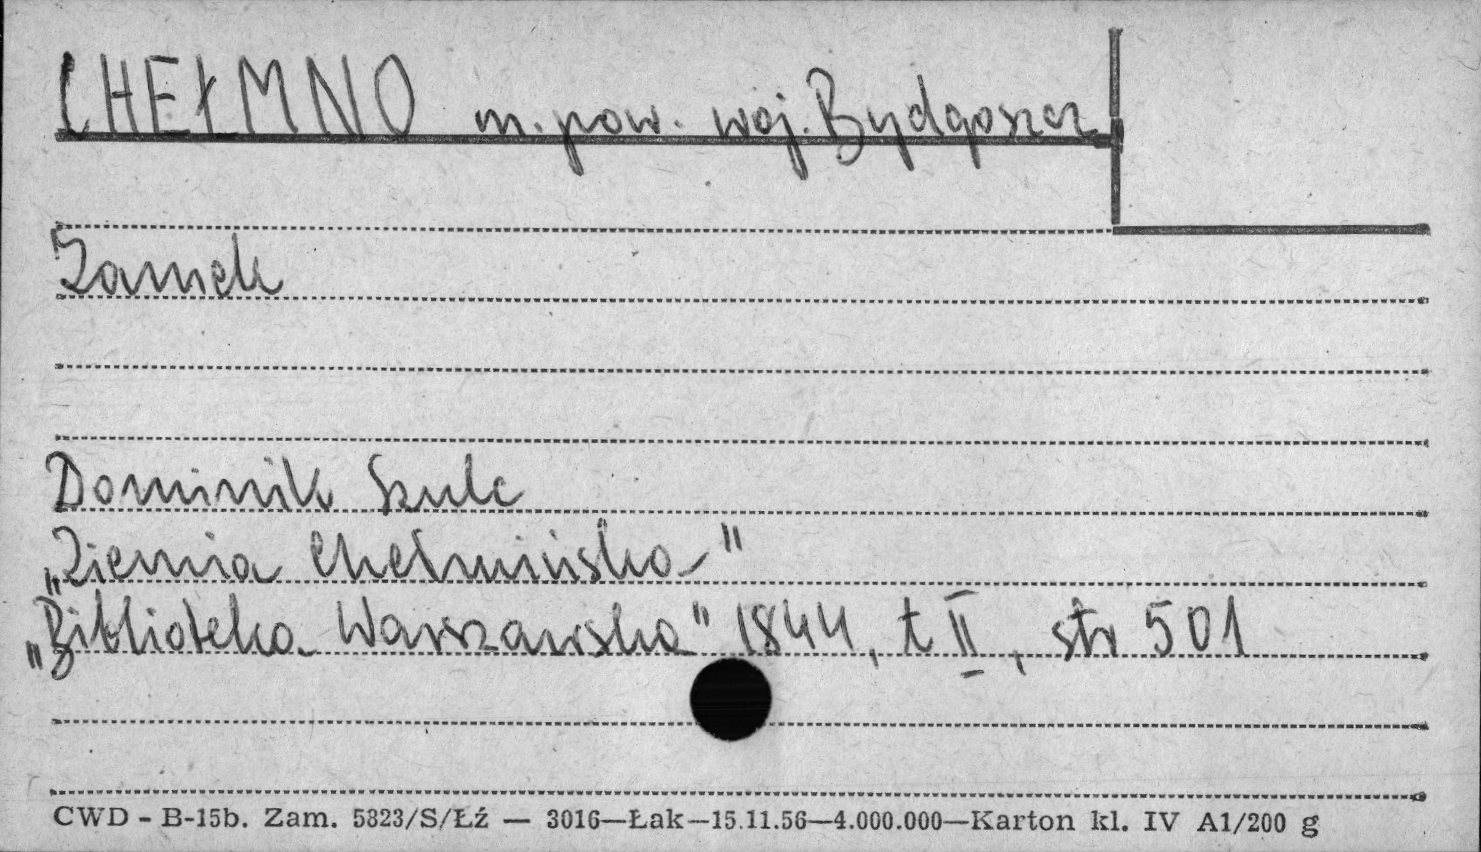 CHEŁMNO m. pow. woj. Bydgoszcz
Zamek
Dominik Szulc
„Ziemia Chełmińska"
„Biblioteka Warszawska" 1844, t II, str 501
CWD - B-15b. Zam. 5823/S/Łź — 3016—Łak—15.11.56—4.000.000—Karton kl. IV A1/200 g